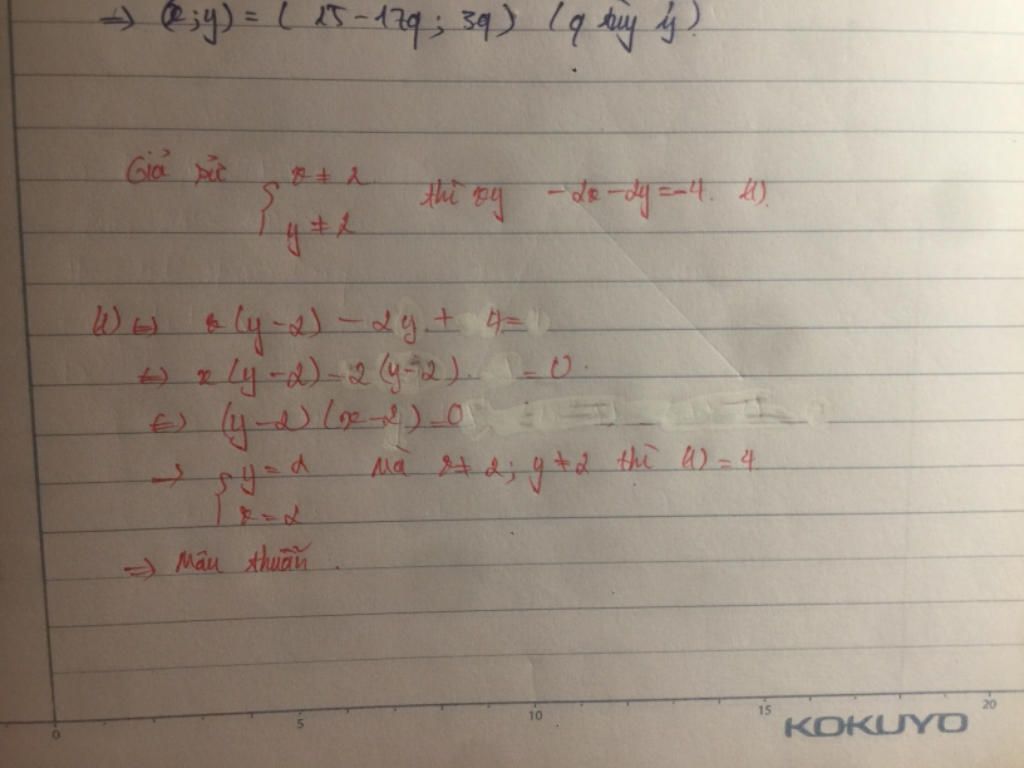 => (x;y) = ( 25 - 17q ; 3q ) (q tùy ý)
Giả sử { x ≠ 2 thì xy - 2x - 2y = -4. (1)
y ≠ 2
(1) <=> x(y-2) - 2y + 4 =
<=> x(y-2) - 2(y-2) = 0.
<=> (y-2)(x-2) = 0
-> { y = 2 Mà x ≠ 2; y ≠ 2 thì (1) = 4
x = 2
=> Mâu thuẫn.
0 5 10 15 20
KOKUYO